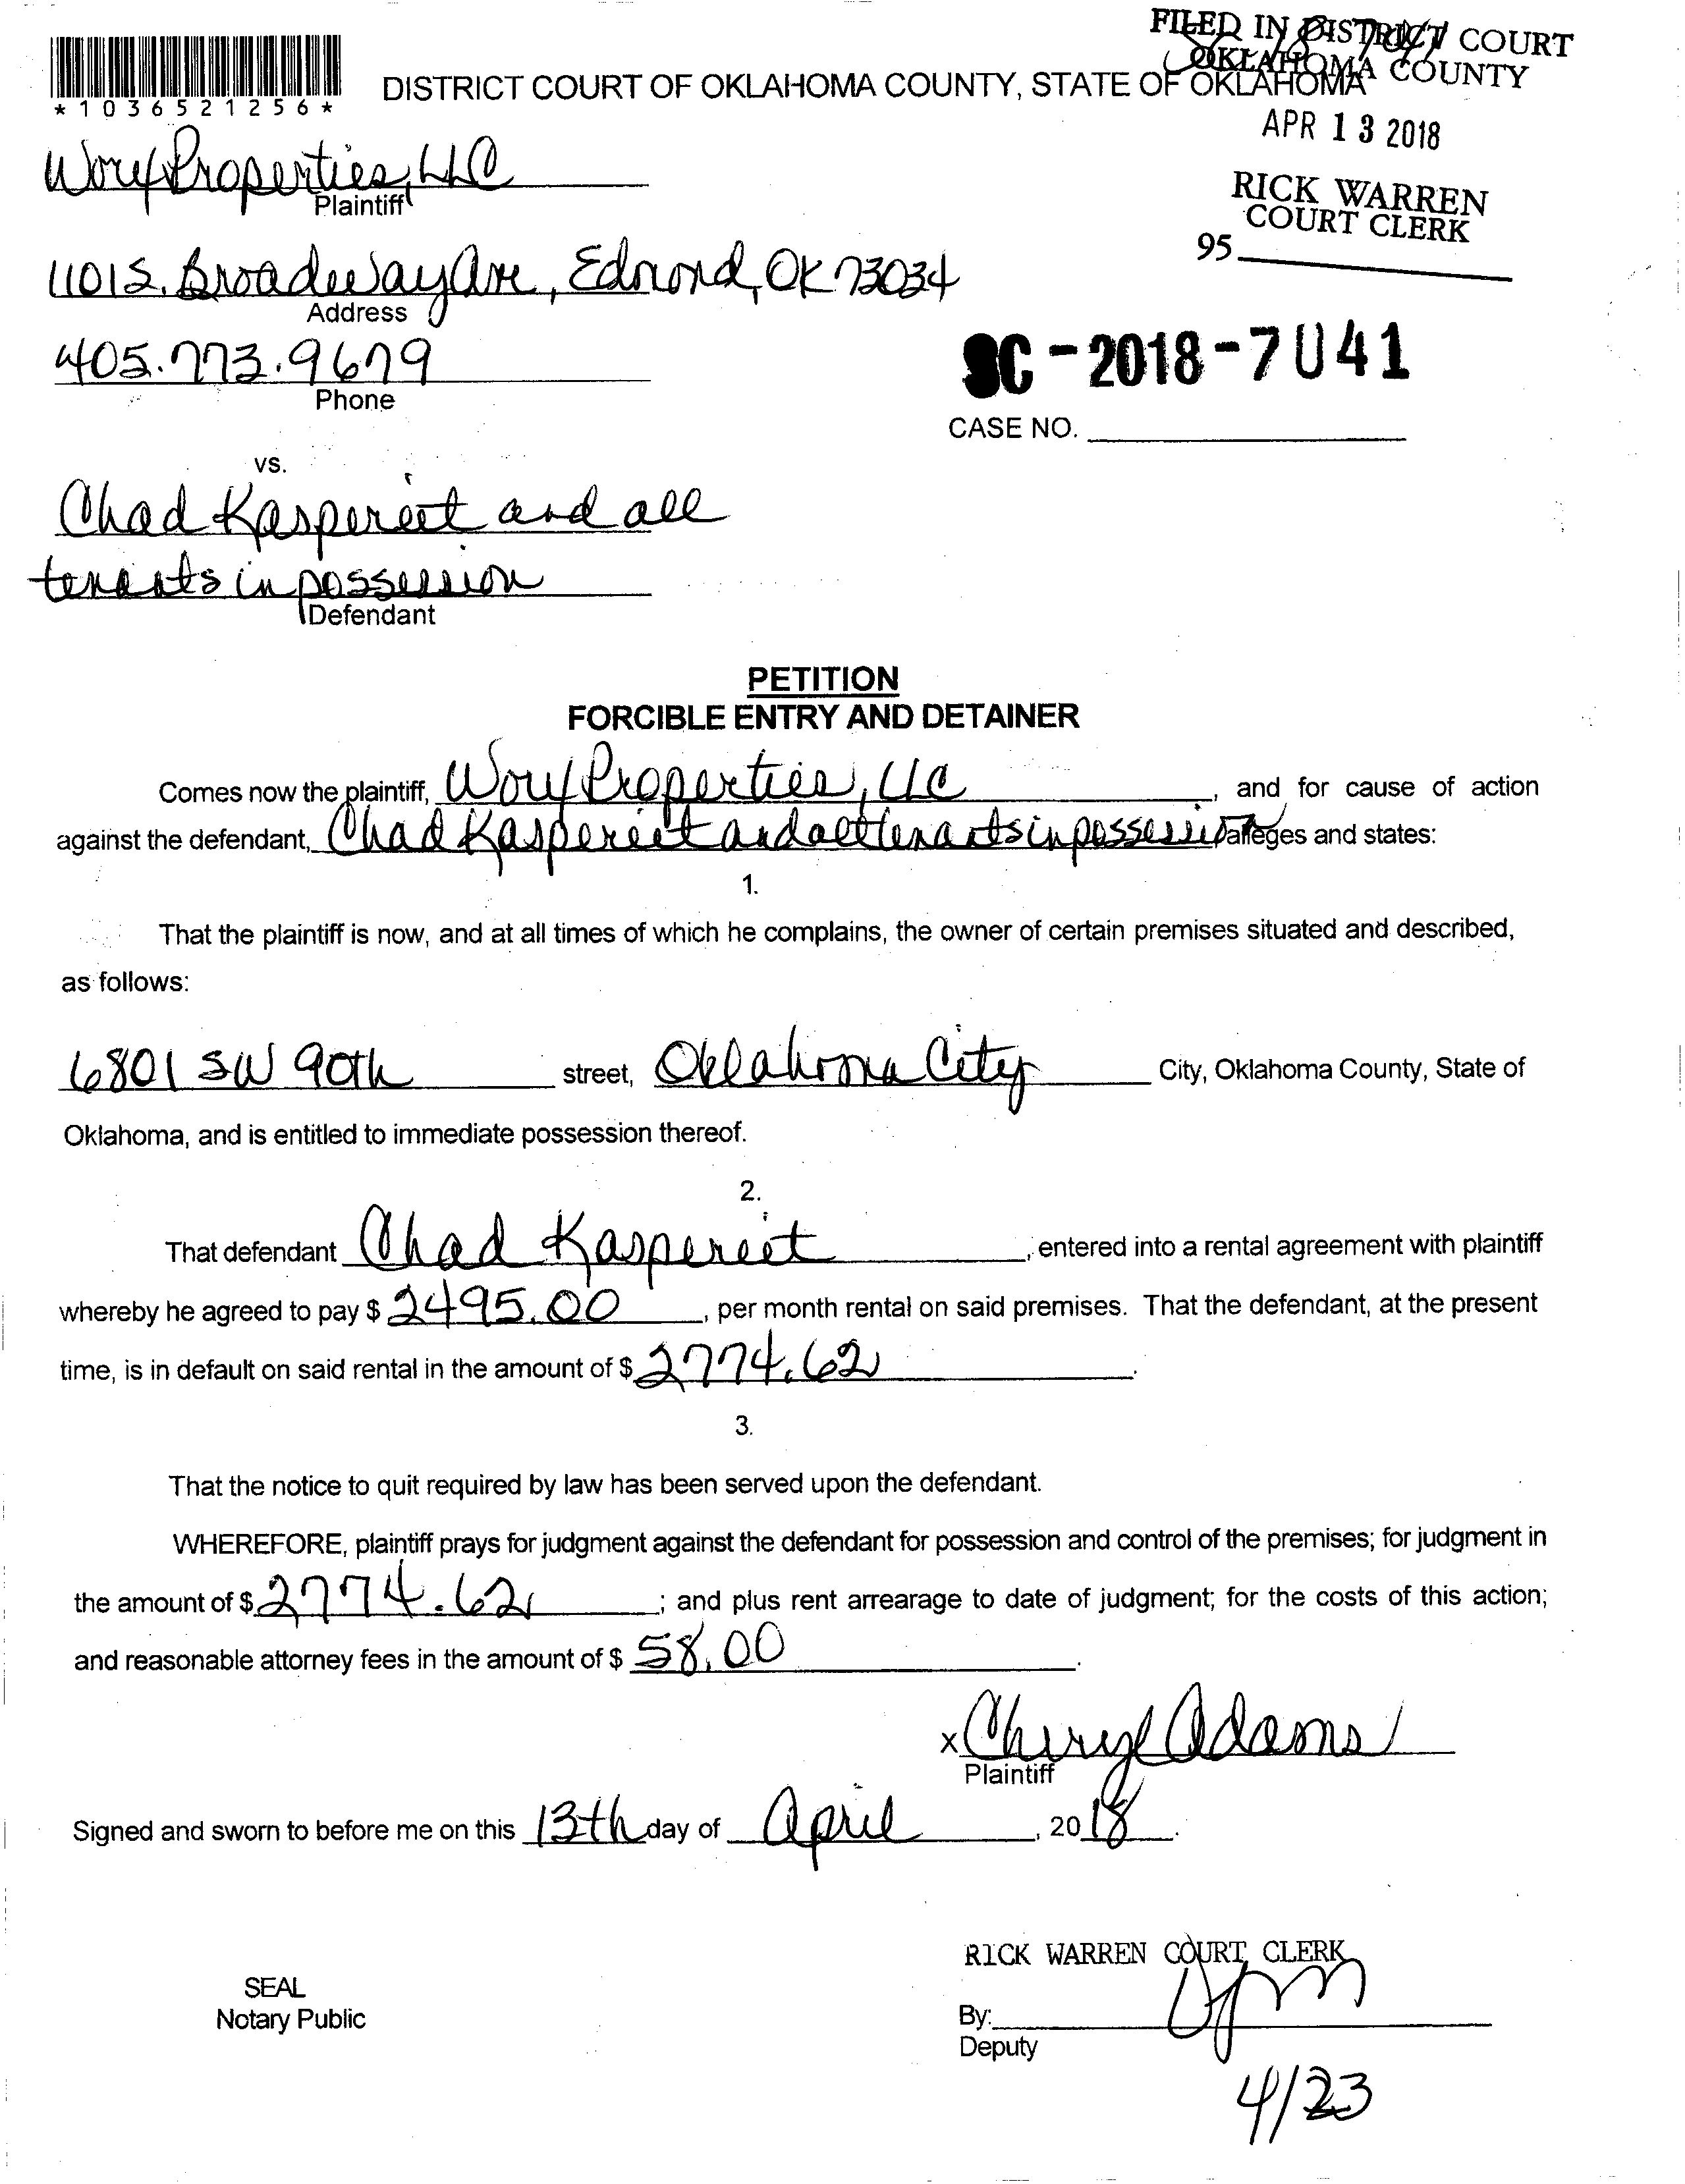 FILED IN DISTRICT COURT
OKLAHOMA COUNTY
*1036521256*
DISTRICT COURT OF OKLAHOMA COUNTY, STATE OF OKLAHOMA
APR 13 2018
RICK WARREN
COURT CLERK
95
Properties, LLC
Plaintiff
1101 S. Broadway Ave, Edmond, OK 73034
Address
405.773.9679
Phone
SC-2018-7041
CASE NO.
vs.
Chad Kaspereit and all
tenants in possession
Defendant
PETITION
FORCIBLE ENTRY AND DETAINER
Comes now the plaintiff, Properties, LLC, and for cause of action
against the defendant, Chad Kaspereit and all tenants in possession alleges and states:
1.
That the plaintiff is now, and at all times of which he complains, the owner of certain premises situated and described,
as follows:
6801 SW 90th street, Oklahoma City City, Oklahoma County, State of
Oklahoma, and is entitled to immediate possession thereof.
2.
That defendant Chad Kaspereit, entered into a rental agreement with plaintiff
whereby he agreed to pay $ 2495.00, per month rental on said premises. That the defendant, at the present
time, is in default on said rental in the amount of $ 2774.62.
3.
That the notice to quit required by law has been served upon the defendant.
WHEREFORE, plaintiff prays for judgment against the defendant for possession and control of the premises; for judgment in
the amount of $ 2774.62; and plus rent arrearage to date of judgment; for the costs of this action;
and reasonable attorney fees in the amount of $ 58.00.
x Cheryl Adams
Plaintiff
Signed and sworn to before me on this 13th day of April, 2018.
RICK WARREN COURT CLERK
SEAL
Notary Public
By:
Deputy
4/23